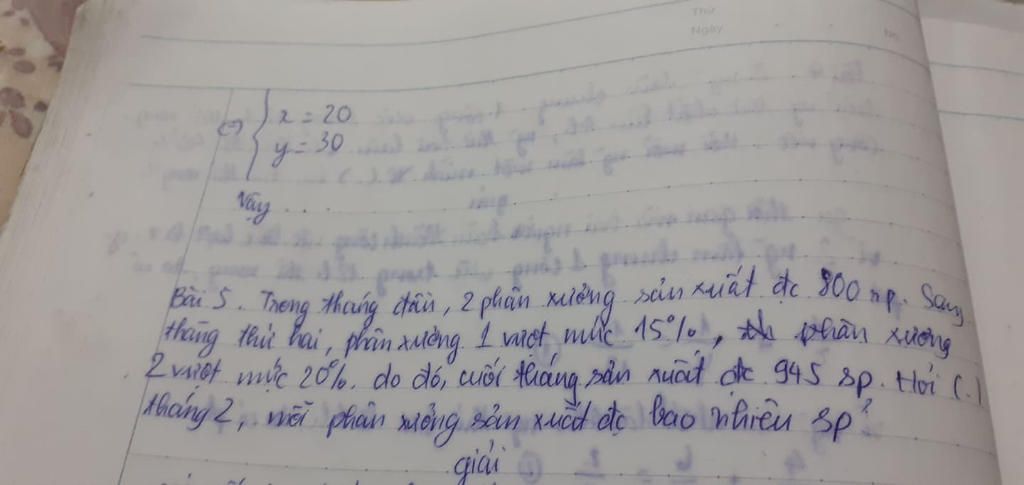 Thứ
Ngày
No.
<=> { x = 20
y = 30
Vậy . . . . .
Bài 5. Trong tháng đầu, 2 phân xưởng sản xuất đc 800 sp. Sang
tháng thứ hai, phân xưởng 1 vượt mức 15%, phân xương
2 vượt mức 20%. do đó, cuối tháng sản xuất đc 945 sp. Hỏi (.)
tháng 2, mỗi phân xưởng sản xuất đc bao nhiêu sp?
giải